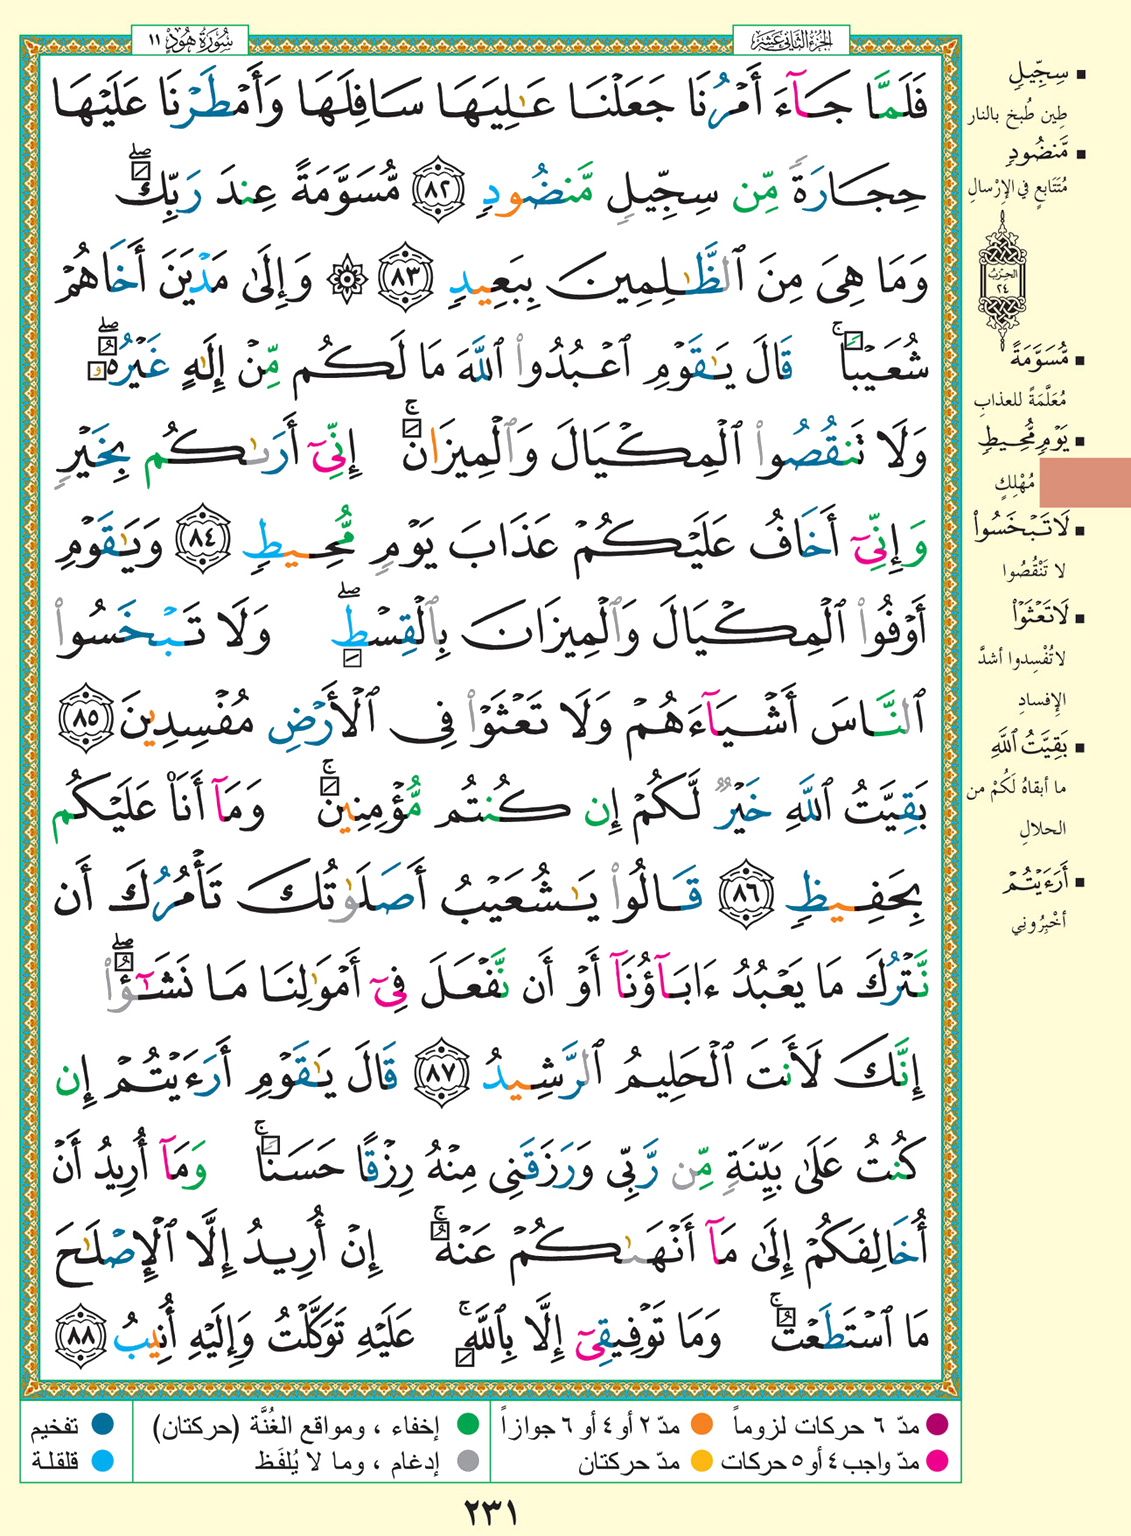 سُورَةُ هُودٍ ١١
الجزء الثاني عشر
فَلَمَّا جَآءَ أَمْرُنَا جَعَلْنَا عَـٰلِيَهَا سَافِلَهَا وَأَمْطَرْنَا عَلَيْهَا
حِجَارَةً مِّن سِجِّيلٍ مَّنضُودٍ ٨٢ مُّسَوَّمَةً عِندَ رَبِّكَۖ
وَمَا هِىَ مِنَ ٱلظَّـٰلِمِينَ بِبَعِيدٍ ٨٣ ۞ وَإِلَىٰ مَدْيَنَ أَخَاهُمْ
شُعَيْبًاۚ قَالَ يَـٰقَوْمِ ٱعْبُدُوا۟ ٱللَّهَ مَا لَكُم مِّنْ إِلَـٰهٍ غَيْرُهُۥۖ
وَلَا تَنقُصُوا۟ ٱلْمِكْيَالَ وَٱلْمِيزَانَۚ إِنِّىٓ أَرَىٰكُم بِخَيْرٍ
وَإِنِّىٓ أَخَافُ عَلَيْكُمْ عَذَابَ يَوْمٍ مُّحِيطٍ ٨٤ وَيَـٰقَوْمِ
أَوْفُوا۟ ٱلْمِكْيَالَ وَٱلْمِيزَانَ بِٱلْقِسْطِۖ وَلَا تَبْخَسُوا۟
ٱلنَّاسَ أَشْيَآءَهُمْ وَلَا تَعْثَوْا۟ فِى ٱلْأَرْضِ مُفْسِدِينَ ٨٥
بَقِيَّتُ ٱللَّهِ خَيْرٌ لَّكُمْ إِن كُنتُم مُّؤْمِنِينَۚ وَمَآ أَنَا۠ عَلَيْكُم
بِحَفِيظٍ ٨٦ قَالُوا۟ يَـٰشُعَيْبُ أَصَلَوٰتُكَ تَأْمُرُكَ أَن
نَّتْرُكَ مَا يَعْبُدُ ءَابَآؤُنَآ أَوْ أَن نَّفْعَلَ فِىٓ أَمْوَٰلِنَا مَا نَشَـٰٓؤُا۟ۖ
إِنَّكَ لَأَنتَ ٱلْحَلِيمُ ٱلرَّشِيدُ ٨٧ قَالَ يَـٰقَوْمِ أَرَءَيْتُمْ إِن
كُنتُ عَلَىٰ بَيِّنَةٍ مِّن رَّبِّى وَرَزَقَنِى مِنْهُ رِزْقًا حَسَنًاۚ وَمَآ أُرِيدُ أَنْ
أُخَالِفَكُمْ إِلَىٰ مَآ أَنْهَىٰكُمْ عَنْهُۚ إِنْ أُرِيدُ إِلَّا ٱلْإِصْلَـٰحَ
مَا ٱسْتَطَعْتُۚ وَمَا تَوْفِيقِىٓ إِلَّا بِٱللَّهِۚ عَلَيْهِ تَوَكَّلْتُ وَإِلَيْهِ أُنِيبُ ٨٨
سِجِّيلٍ
طِين طُبخ بالنار
مَّنضُودٍ
مُتَتَابِع في الإِرْسالِ
الحزب
٢٤
مُّسَوَّمَةً
مُعَلَّمَةً للعذابِ
يَوْمٍ مُّحِيطٍ
مُهْلِكٍ
لَا تَبْخَسُوا۟
لا تَنْقُصُوا
لَا تَعْثَوْا۟
لا تُفْسِدوا أشدَّ
الإفسادِ
بَقِيَّتُ ٱللَّهِ
ما أبقاهُ لَكُمْ من
الحلالِ
أَرَءَيْتُمْ
أخْبِرُوني
مدّ ٦ حركات لزوماً
مدّ ٢ أو ٤ أو ٦ جوازاً
إخفاء ، ومواقع الغُنَّة (حركتان)
تفخيم
مدّ واجب ٤ أو ٥ حركات
مدّ حركتان
إدغام ، وما لا يُلفَظ
قلقلة
٢٣١